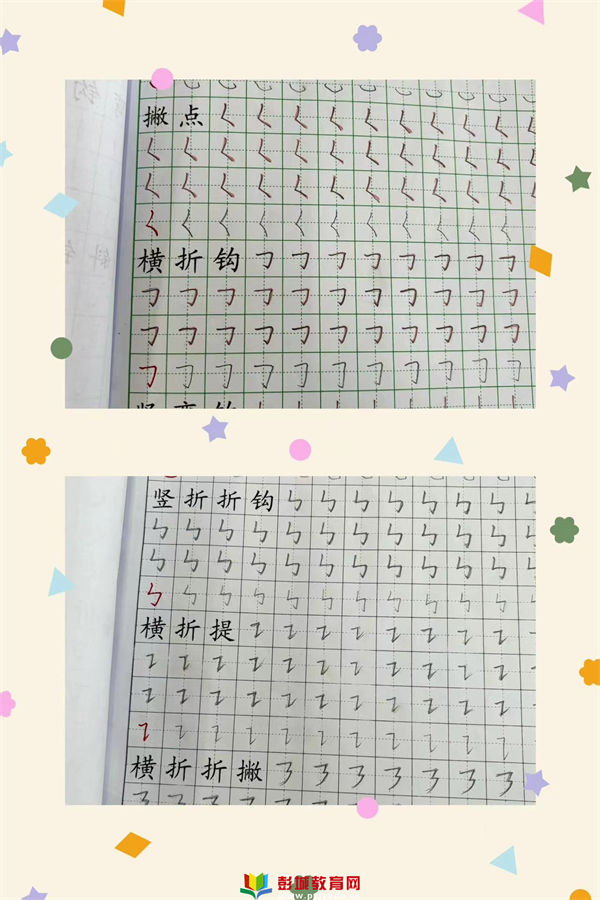 撇点
横折钩
竖折折钩
横折提
横折折撇
彭城教育网